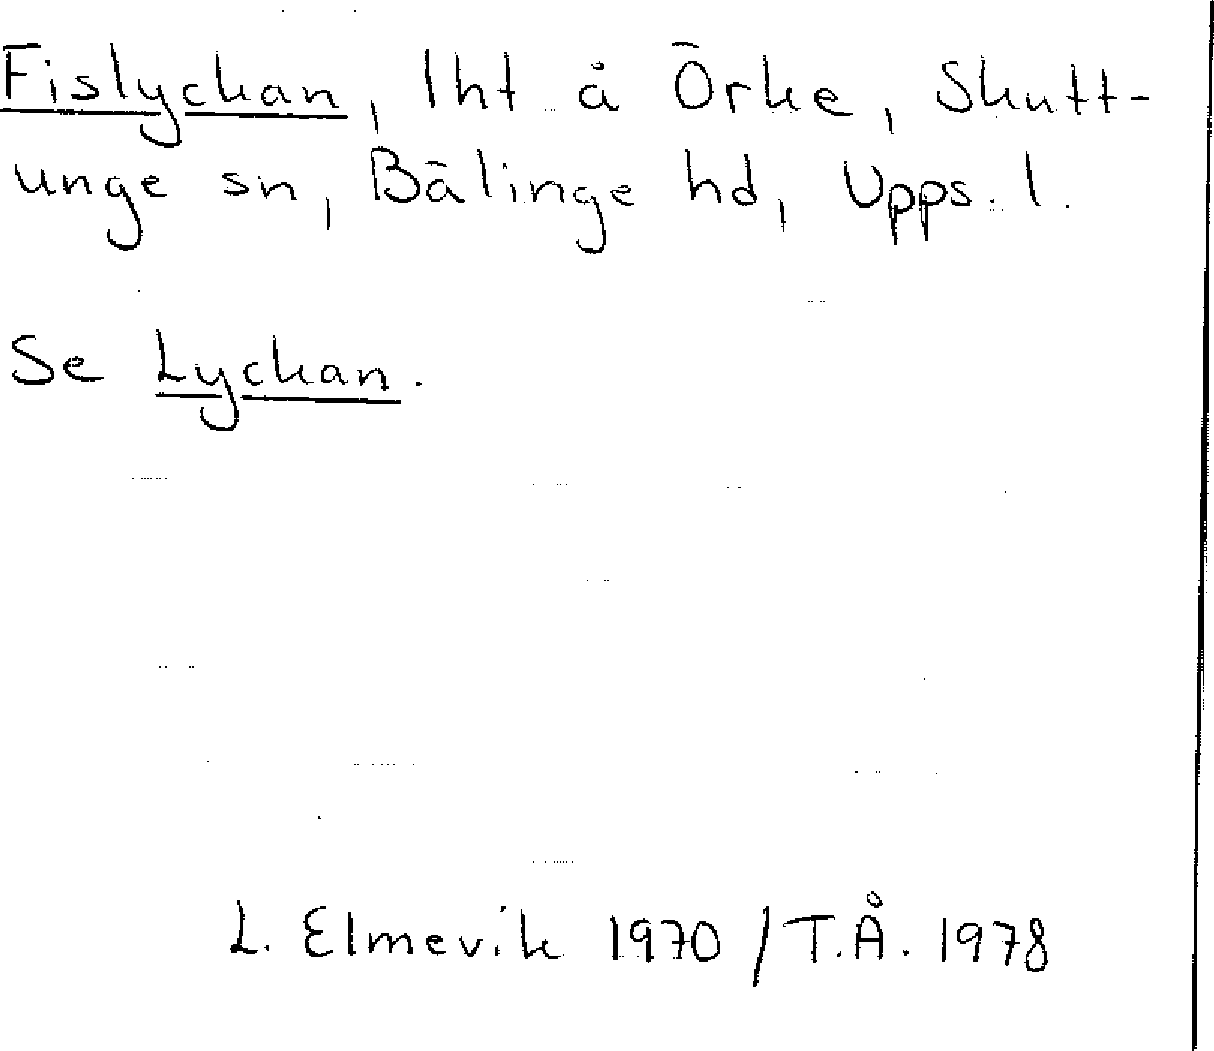 Fislyckan, lht å Örke, Skutt-
unge sn, Bälinge hd, Upps. l.
Se Lyckan.
L. Elmevik 1970 / T.Å. 1978